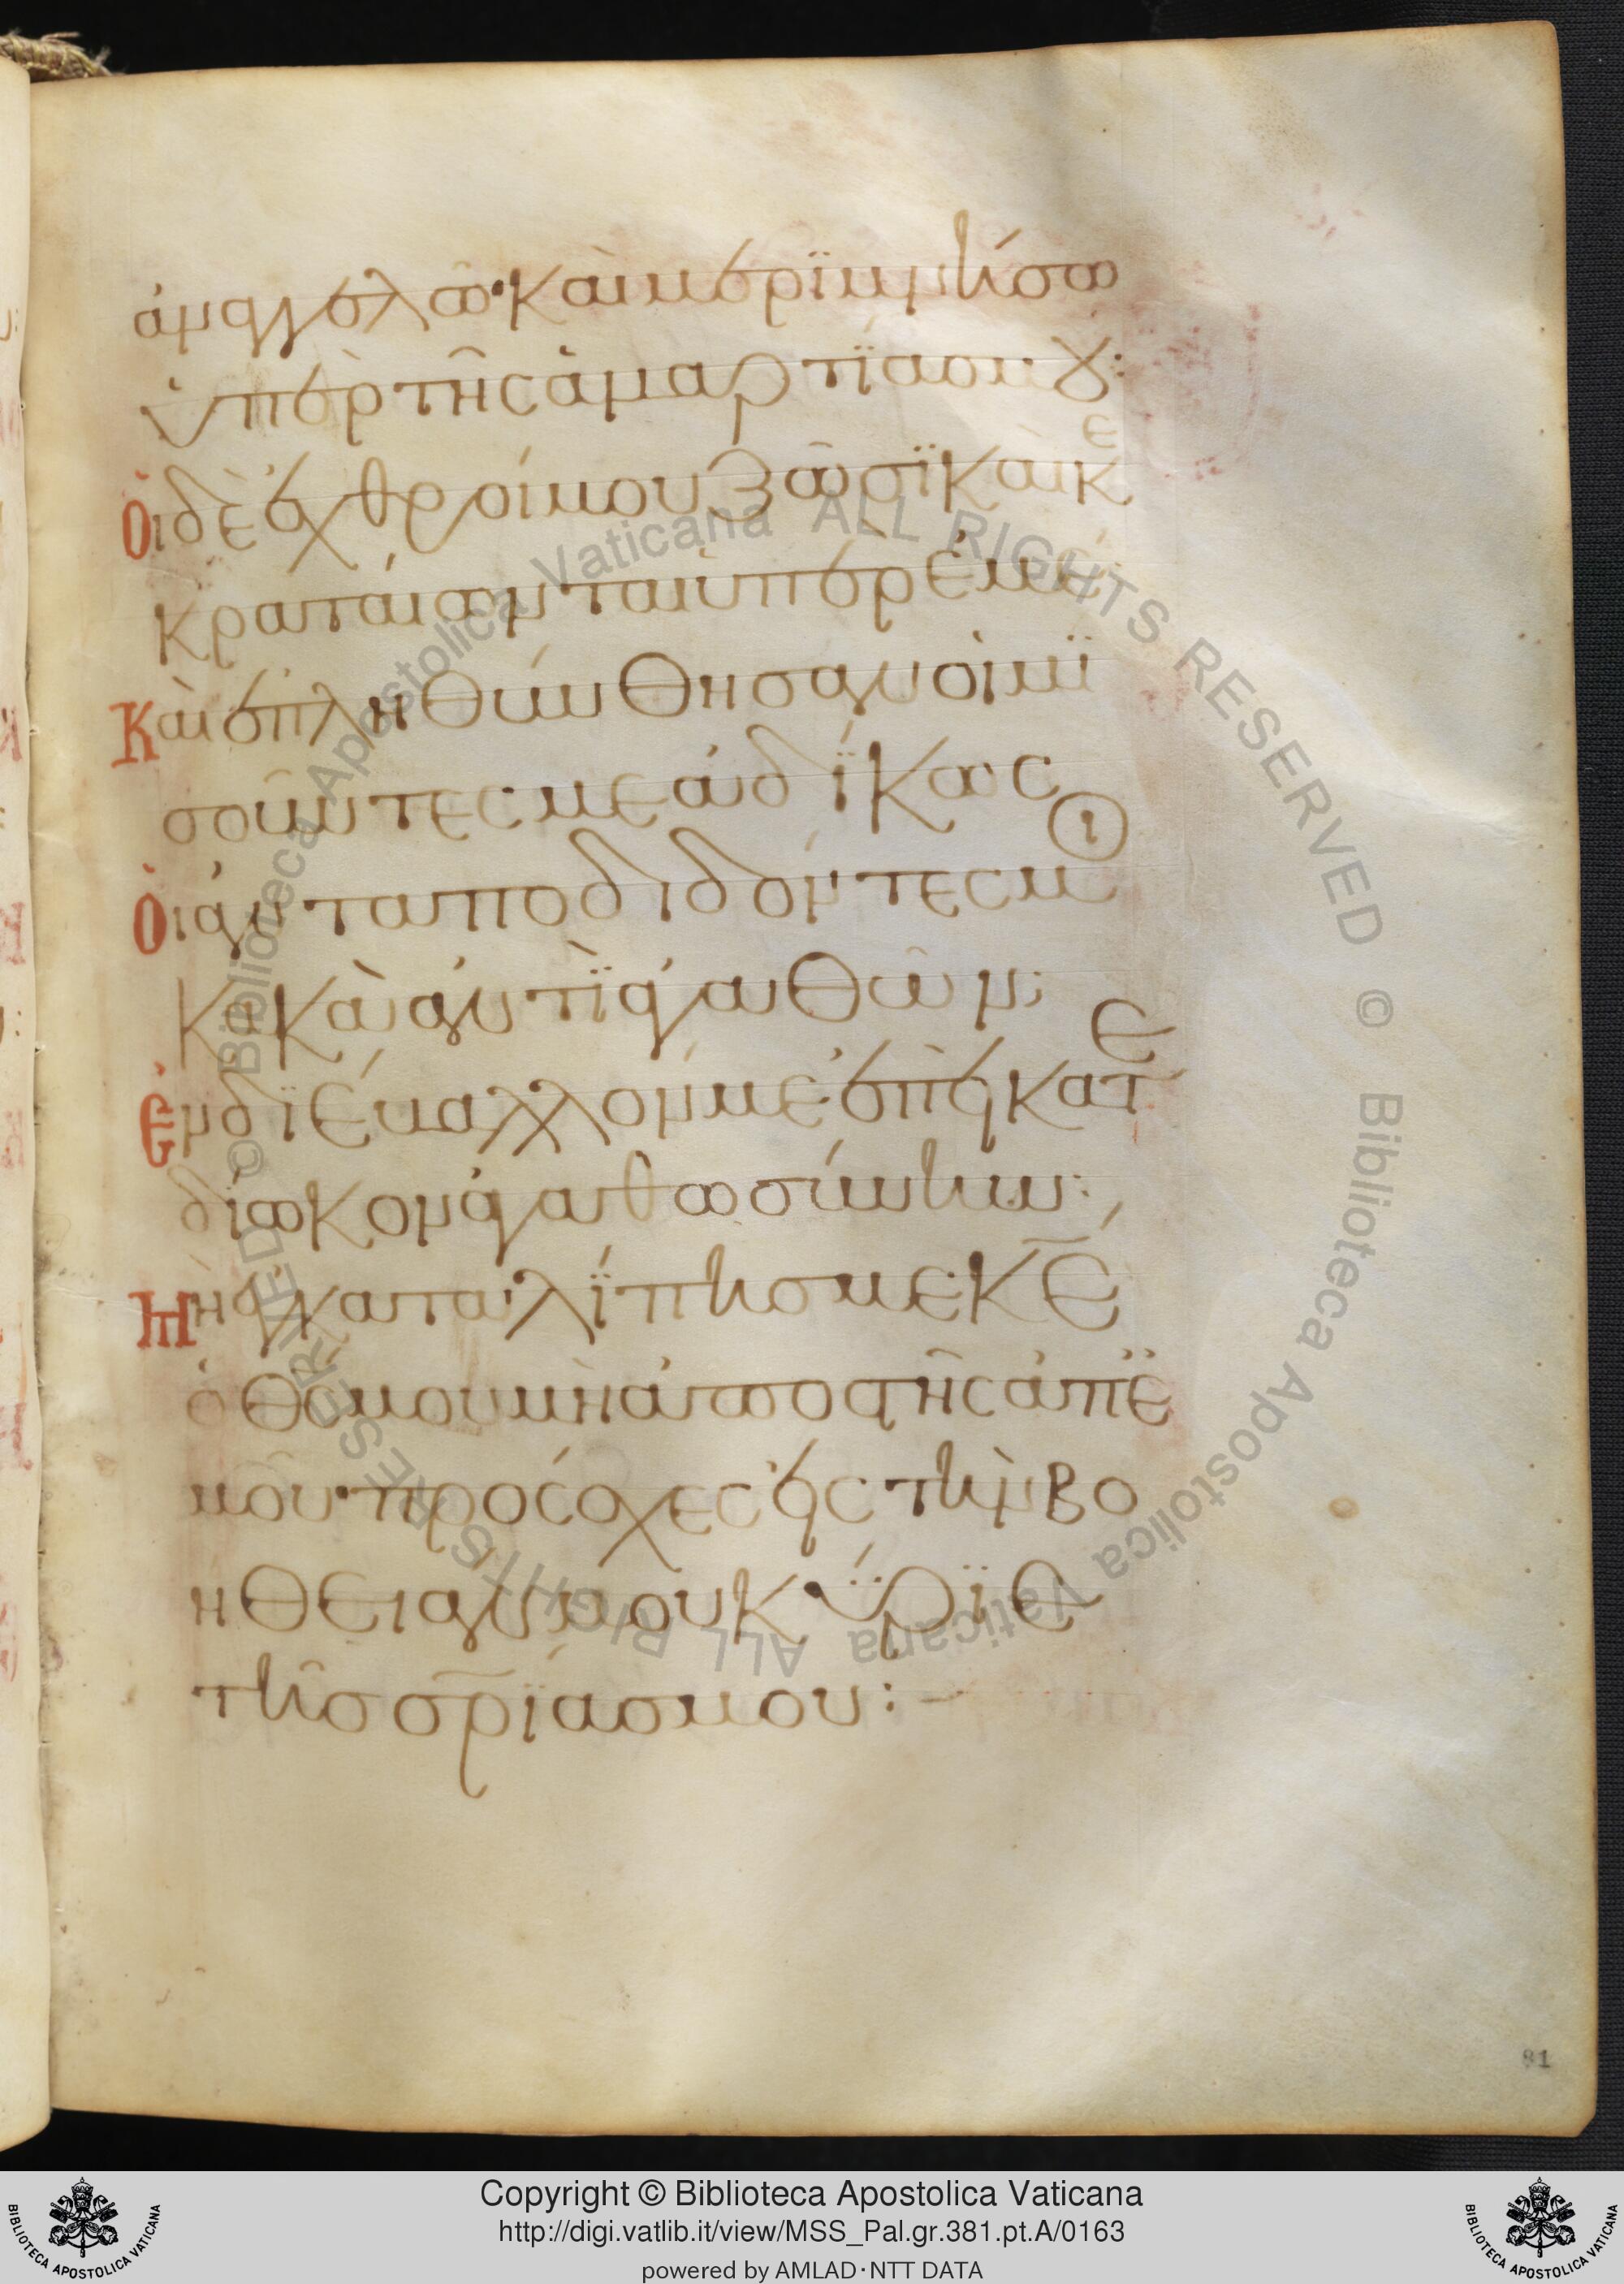 ἀναγγελῶ· καὶ μερϊμνήσω
ὑπὲρ τῆς ἁμαρτΐας μου:
Ὁι δὲ ἐχθροί μου ζῶσϊ καὶ κε
κραταίωνται ὑπὲρ ἐμέ
Καὶ ἐπληθύνθησαν οἱ μϊ
σοῦντές με ἀδΐκως
Ὁι ἀνταποδιδόντες μοι
κακὰ ἀντῒ ἀγαθῶν;
Ἐνδϊέβαλλόν με ἐπεὶ κατε
δίωκον ἀγαθωσύνην:
Μὴ ἐγκαταλΐπῃς με κ̅ε̅
ὁ θ̅ς̅ μου μὴ ἀποστῆς ἀπ ἐ
μοῦ· πρόσχες εἰς τὴν βο
ήθειάν μου κύρϊε
τῆς σ̅ρ̅ΐας μου:-
81
© Biblioteca Apostolica Vaticana ALL RIGHTS RESERVED © Biblioteca Apostolica Vaticana ALL RIGHTS RESERVED
BIBLIOTECA APOSTOLICA VATICANA
Copyright © Biblioteca Apostolica Vaticana
http://digi.vatlib.it/view/MSS_Pal.gr.381.pt.A/0163
powered by AMLAD·NTT DATA
BIBLIOTECA APOSTOLICA VATICANA